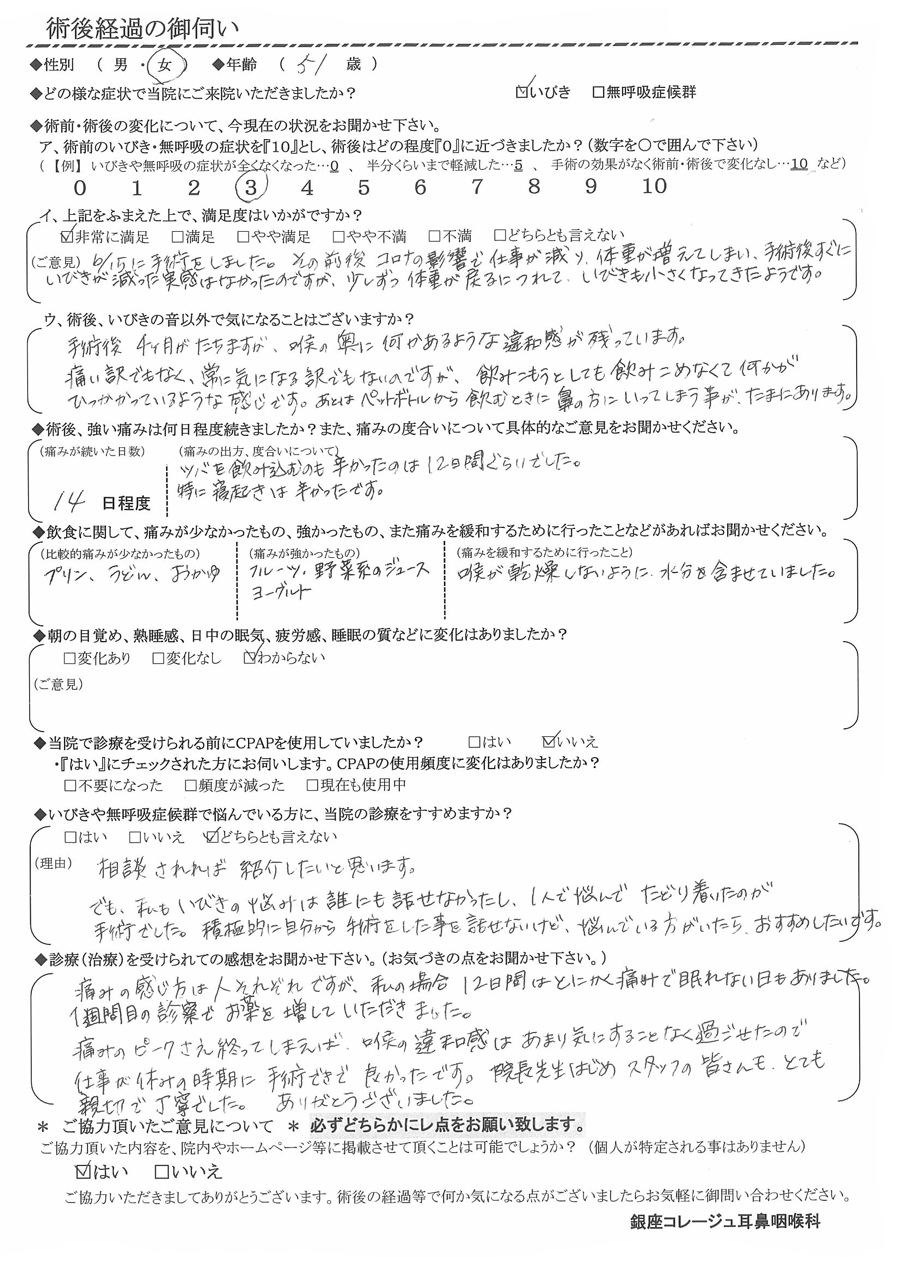 術後経過の御伺い
◆性別 ( 男 ・ 女 ) ◆年齢 ( 51 歳 )
◆どの様な症状で当院にご来院いただきましたか? ☑いびき □無呼吸症候群
◆術前・術後の変化について、今現在の状況をお聞かせ下さい。
ア、術前のいびき・無呼吸の症状を『10』とし、術後はどの程度『0』に近づきましたか?(数字を○で囲んで下さい)
(【例】 いびきや無呼吸の症状が全くなくなった…0 、 半分くらいまで軽減した…5 、 手術の効果がなく術前・術後で変化なし…10 など)
0 1 2 3 4 5 6 7 8 9 10
イ、上記をふまえた上で、満足度はいかがですか?
☑非常に満足 □満足 □やや満足 □やや不満 □不満 □どちらとも言えない
(ご意見) 6/15に手術をしました。その前後 コロナの影響で仕事が減り、体重が増えてしまい、手術後すぐに
いびきが減った実感はなかったのですが、少しずつ体重が戻るにつれて、いびきも小さくなってきたようです。
ウ、術後、いびきの音以外で気になることはございますか?
手術後 4ヶ月がたちますが、喉の奥に何かあるような違和感が残っています。
痛い訳でもなく、常に気になる訳でもないのですが、飲みこもうとしても飲みこめなくて何かが
ひっかかっているような感じです。あとはペットボトルから飲むときに鼻の方にいってしまう事が、たまにあります。
◆術後、強い痛みは何日程度続きましたか?また、痛みの度合いについて具体的なご意見をお聞かせください。
(痛みが続いた日数) (痛みの出方、度合いについて)
ツバを飲み込むのも辛かったのは12日間ぐらいでした。
特に寝起きは辛かったです。
14 日程度
◆飲食に関して、痛みが少なかったもの、強かったもの、また痛みを緩和するために行ったことなどがあればお聞かせください。
(比較的痛みが少なかったもの) (痛みが強かったもの) (痛みを緩和するために行ったこと)
プリン、うどん、おかゆ フルーツ・野菜系のジュース 喉が乾燥しないように、水分を含ませていました。
ヨーグルト
◆朝の目覚め、熟睡感、日中の眠気、疲労感、睡眠の質などに変化はありましたか?
□変化あり □変化なし ☑わからない
(ご意見)
◆当院で診療を受けられる前にCPAPを使用していましたか? □はい ☑いいえ
・『はい』にチェックされた方にお伺いします。CPAPの使用頻度に変化はありましたか?
□不要になった □頻度が減った □現在も使用中
◆いびきや無呼吸症候群で悩んでいる方に、当院の診療をすすめますか?
□はい □いいえ ☑どちらとも言えない
(理由) 相談されれば紹介したいと思います。
でも、私もいびきの悩みは誰にも話せなかったし、1人で悩んでたどり着いたのが
手術でした。積極的に自分から手術をした事を話せないけど、悩んでいる方がいたら、おすすめしたいです。
◆診療(治療)を受けられての感想をお聞かせ下さい。(お気づきの点をお聞かせ下さい。)
痛みの感じ方は人それぞれですが、私の場合12日間はとにかく痛みで眠れない日もありました。
1週間目の診察でお薬を増していただきました。
痛みのピークさえ終ってしまえば、喉の違和感はあまり気にすることなく過ごせたので
仕事が休みの時期に手術できて良かったです。院長先生はじめスタッフの皆さんも、とても
親切で丁寧でした。ありがとうございました。
＊ ご協力頂いたご意見について ＊ 必ずどちらかにレ点をお願い致します。
ご協力頂いた内容を、院内やホームページ等に掲載させて頂くことは可能でしょうか? (個人が特定される事はありません)
☑はい □いいえ
ご協力いただきましてありがとうございます。術後の経過等で何か気になる点がございましたらお気軽に御問い合わせください。
銀座コレージュ耳鼻咽喉科